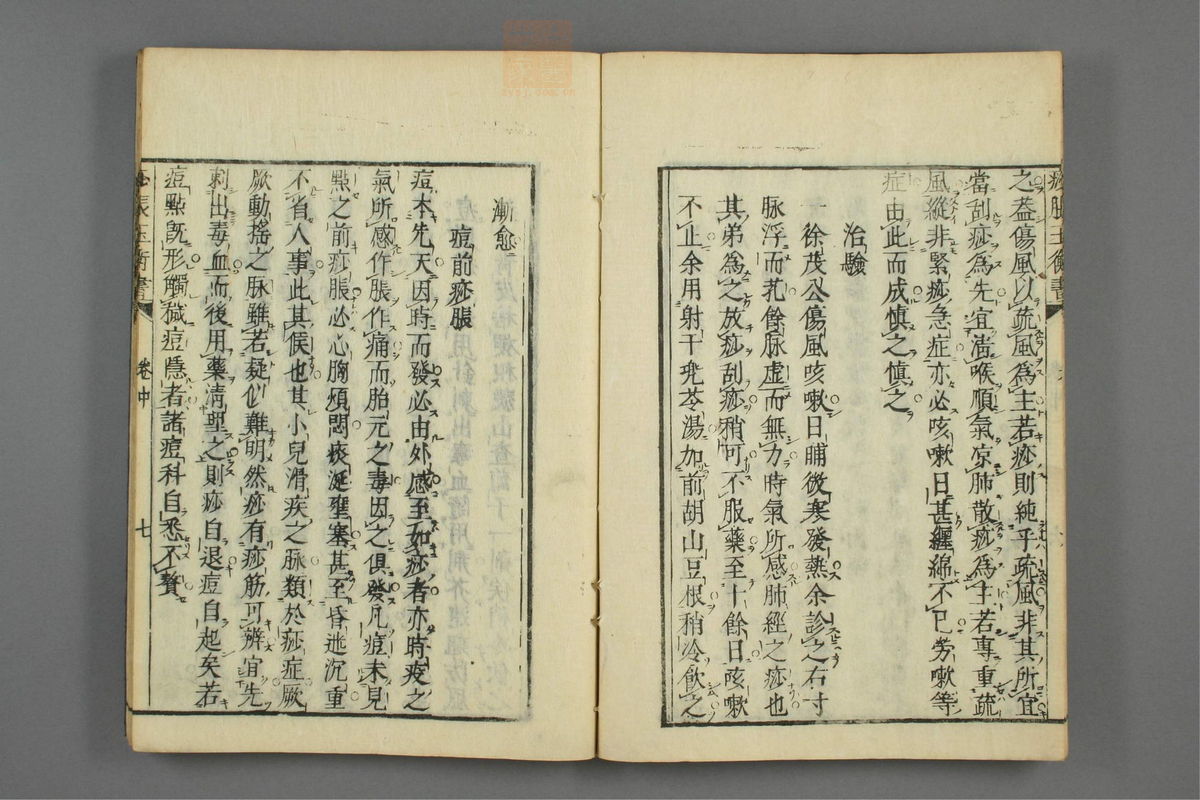 之蓋傷風以疏風為主若痧則純乎疏風非其所宜
當刮痧為先宜清喉順氣凉肺散痧為主若專重疏
風縱非緊痧急症亦必咳嗽日甚纏綿不已勞嗽等
症由此而成慎之慎之
治驗
一徐茂公傷風咳嗽日晡微寒發熱余診之右寸
脉浮而芤餘脉虛而無力時氣所感肺經之痧也
其弟為之放痧刮痧稍可不服藥至十餘日咳嗽
不止余用射干兠苓湯加前胡山豆根稍冷飲之
漸愈
痘前痧脹
痘本先天因時而發必由外感至如痧者亦時疫之
氣所感作脹作痛而胎元之毒因之俱發凡痘未見
點之前痧脹必心胸煩悶痰涎壅塞甚至昏迷沉重
不省人事此其候也其小兒滑疾之脉類於痧症厥
厥動搖之脉雖若疑似難明然痧有痧筋可辨宜先
刺出毒血而後用藥清理之則痧自退痘自起矣若
痘點既形觸穢痘隱者諸痘科自悉不贅
痧脹玉衡書
卷中
七